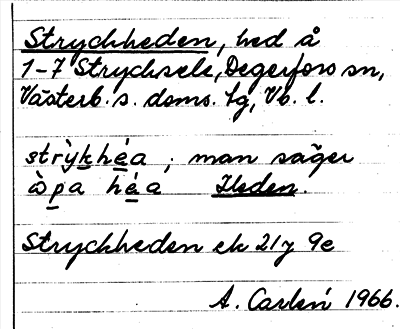 Stryckheden, hed å
1-7 Strycksele, Degerfors sn,
Västerb. s. doms. tg, Vb. l.
strỳkhéa ; man säger
ò̀pa héa Heden.
Stryckheden ek 21J 9e
A. Carlén 1966.